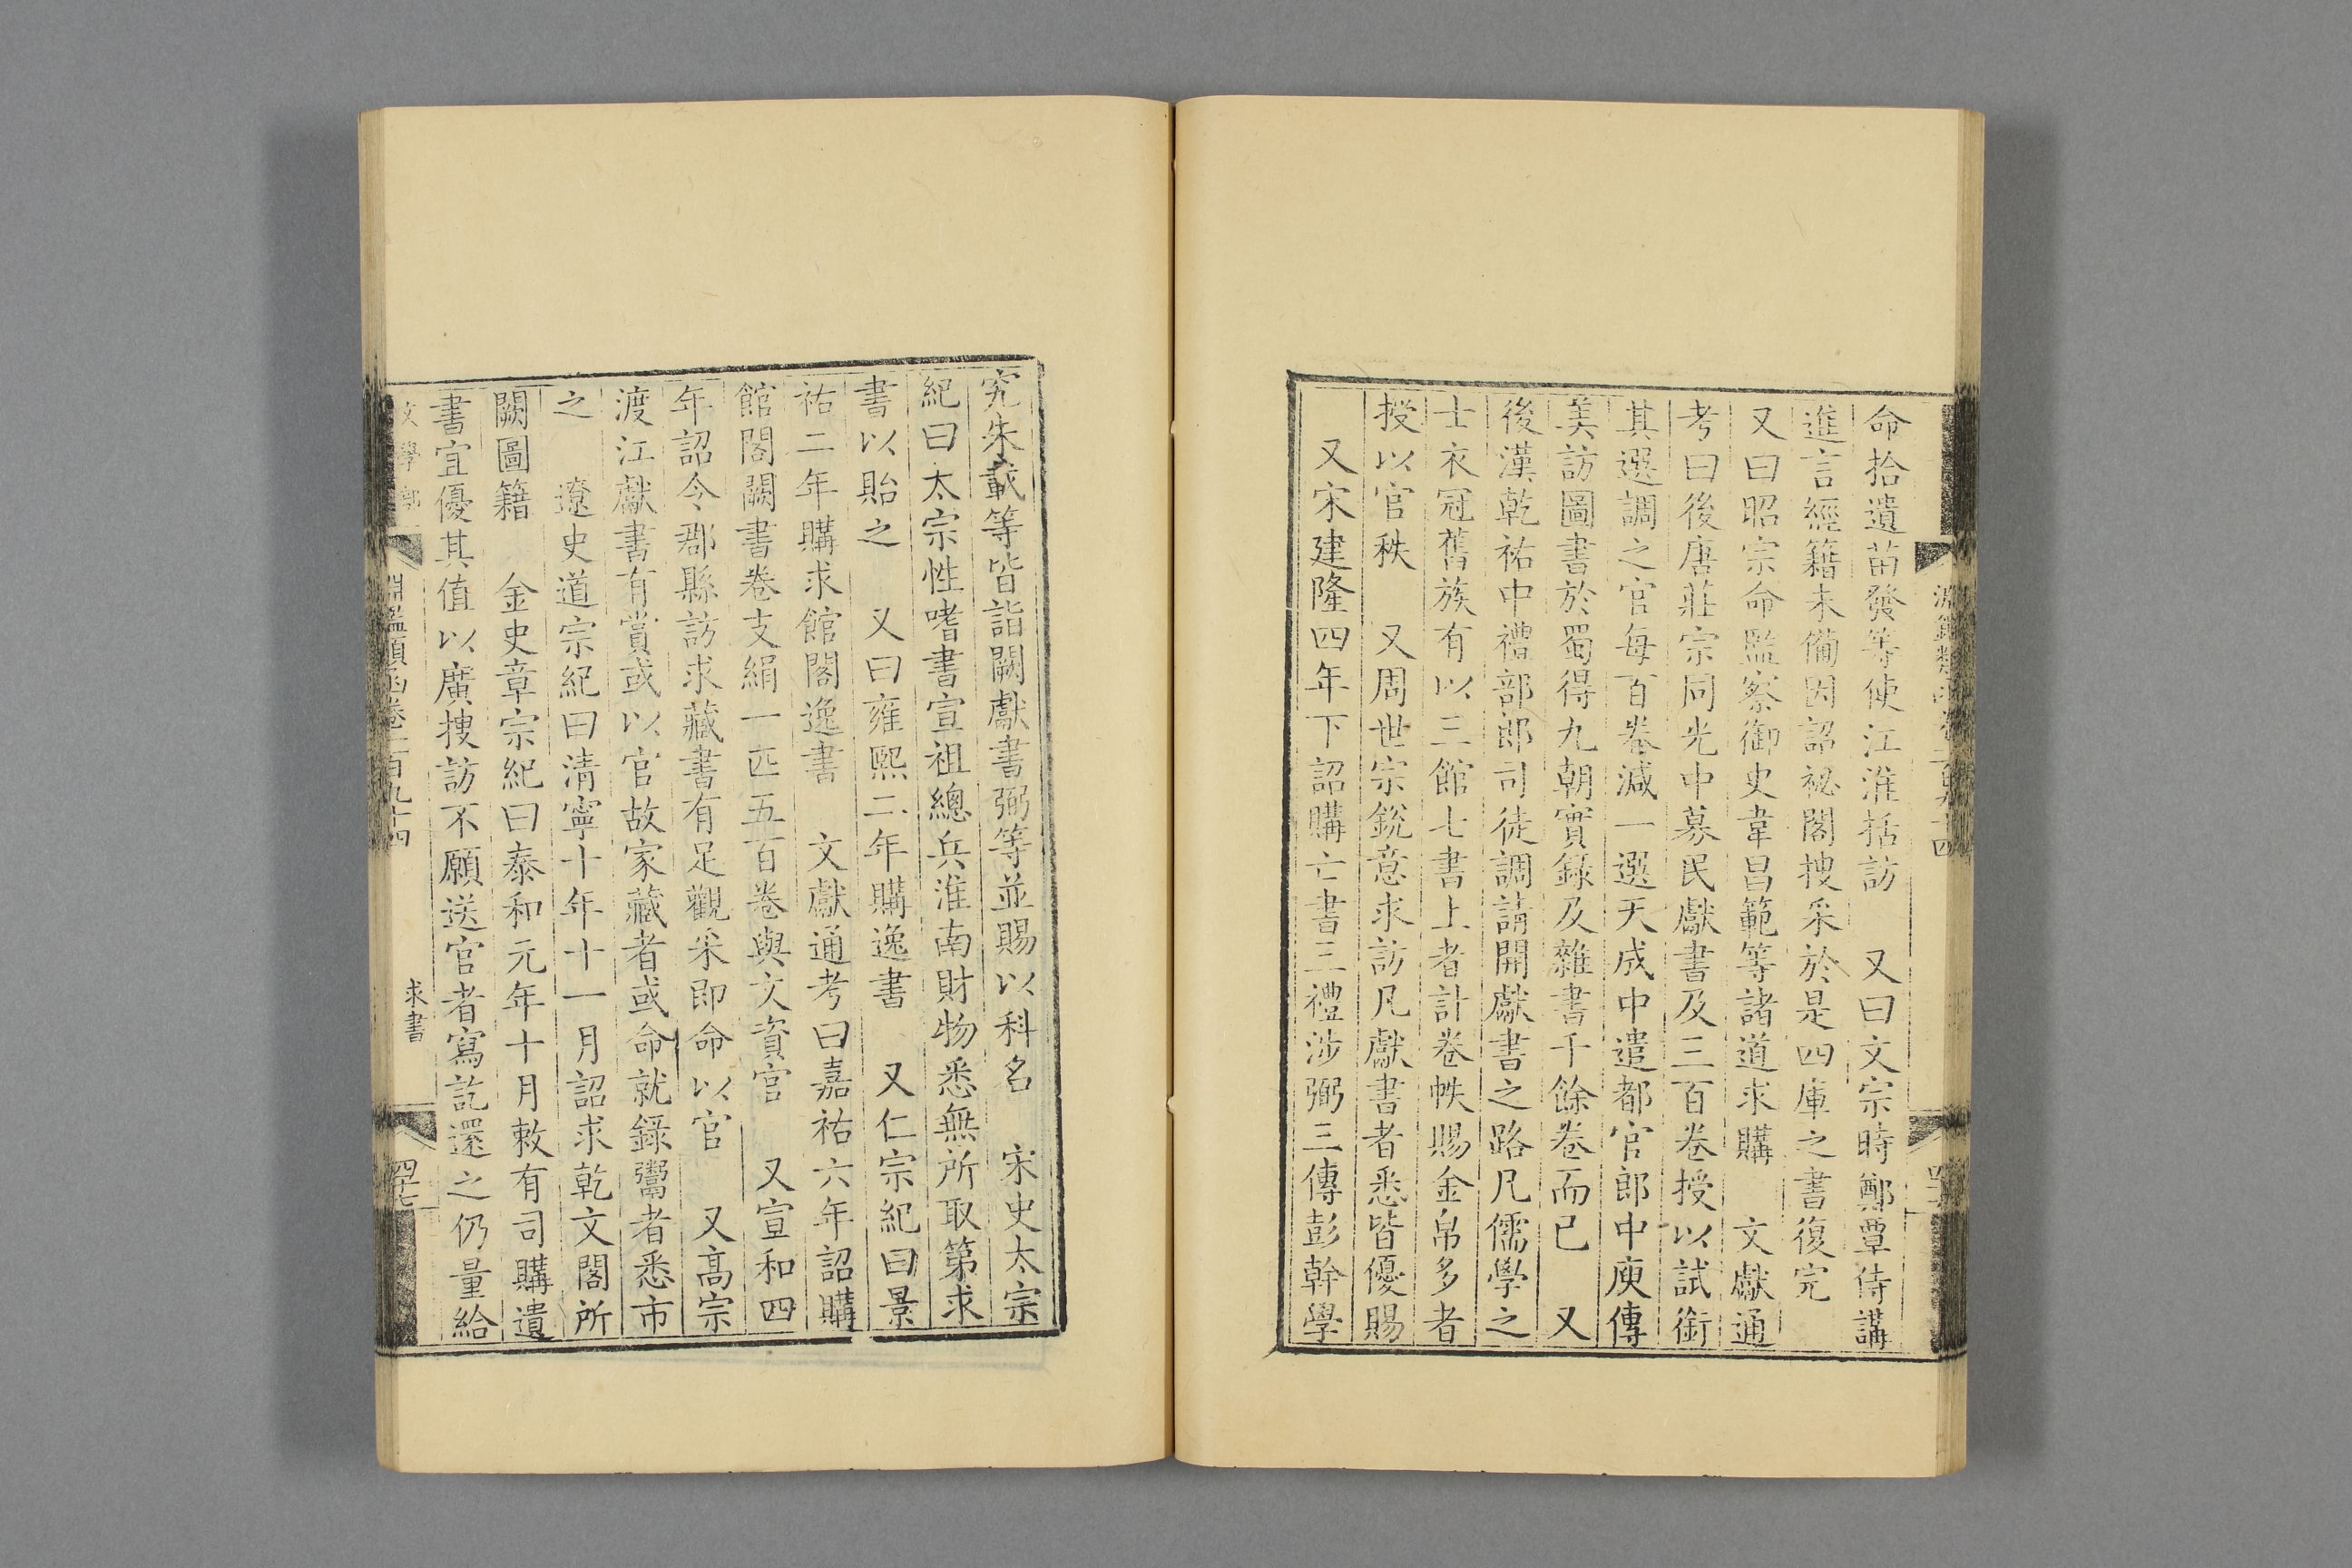 命拾遺苗發等使江淮括訪　又曰文宗時鄭覃侍講
進言經籍未備因詔祕閣搜采於是四庫之書復完
又曰昭宗命監察御史韋昌範等諸道求購　文獻通
考曰後唐莊宗同光中募民獻書及三百卷授以試銜
其選調之官每百卷減一選天成中遣都官郎中庾傳
美訪圖書於蜀得九朝實錄及雜書千餘卷而已　又
後漢乾祐中禮部郎司徒調請開獻書之路凡儒學之
士衣冠舊族有以三館七書上者計卷帙賜金帛多者
授以官秩　又周世宗銳意求訪凡獻書者悉皆優賜
又宋建隆四年下詔購亡書三禮涉弼三傳彭幹學
究朱載等皆詣闕獻書弼等並賜以科名　宋史太宗
紀曰太宗性嗜書宣祖總兵淮南財物悉無所取第求
書以貽之　又曰雍熙二年購逸書　又仁宗紀曰景
祐二年購求館閣逸書　文獻通考曰嘉祐六年詔購
館閣闕書卷支絹一匹五百卷與文資官　又宣和四
年詔令郡縣訪求藏書有足觀采即命以官　又高宗
渡江獻書有賞或以官故家藏者或命就錄鬻者悉市
之　遼史道宗紀曰清寧十年十一月詔求乾文閣所
闕圖籍　金史章宗紀曰泰和元年十月敕有司購遺
書宜優其值以廣搜訪不願送官者寫訖還之仍量給
文學部　淵鑑類函卷一百九十四　求書　四十七